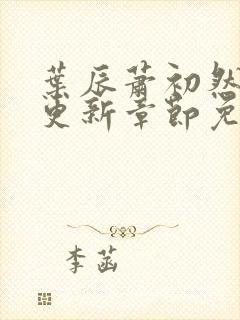 葉辰蕭初然
更新章節免
李菡